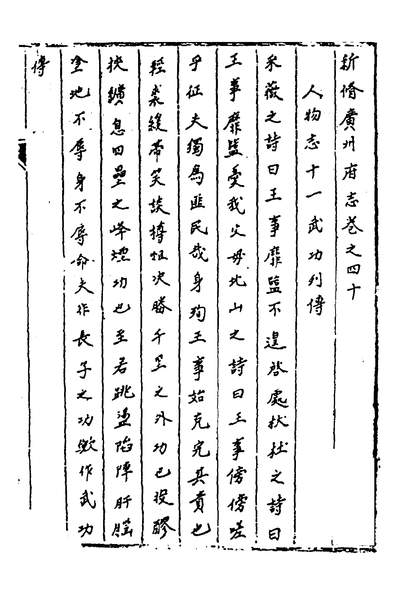 新脩廣州府志卷之四十
人物志十一武功列傳
采薇之詩曰王事靡盬不遑啓處杕杜之詩曰
王事靡盬憂我父母北山之詩曰王事傍傍嗟
乎征夫獨爲匪民哉身殉王事始克完其責也
輕裘緩帶笑談樽俎決勝千里之外功也投醪
挾纊息四壘之烽燧功也至若跳盪陷陣肝腦
塗地不辱身不辱命夫作長子之功歟作武功
傳